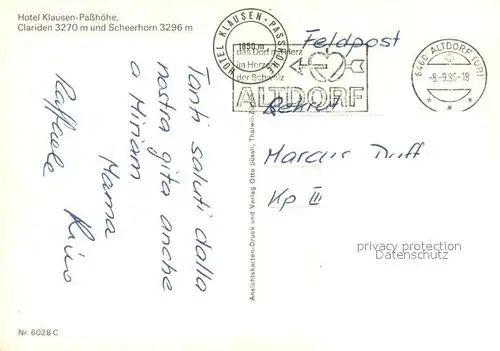 Hotel Klausen-Paßhöhe,
Clariden 3270 m und Scheerhorn 3296 m
HOTEL KLAUSEN-PASSHÖHE
1850 m
das Dorf mit Herz
im Herzen
der Schweiz
ALTDORF
6460 ALTDORF (UR)
-8.-9.86-18
Feldpost
Rekrut
Marcus Duff
Kp III
Tanti saluti dalla
nostra gita anche
a Miriam
Mama
Raffaele
Ansichtskarten-Druck und Verlag Otto Süssli, Thalwil-
privacy protection
Datenschutz
Nr. 6028 C